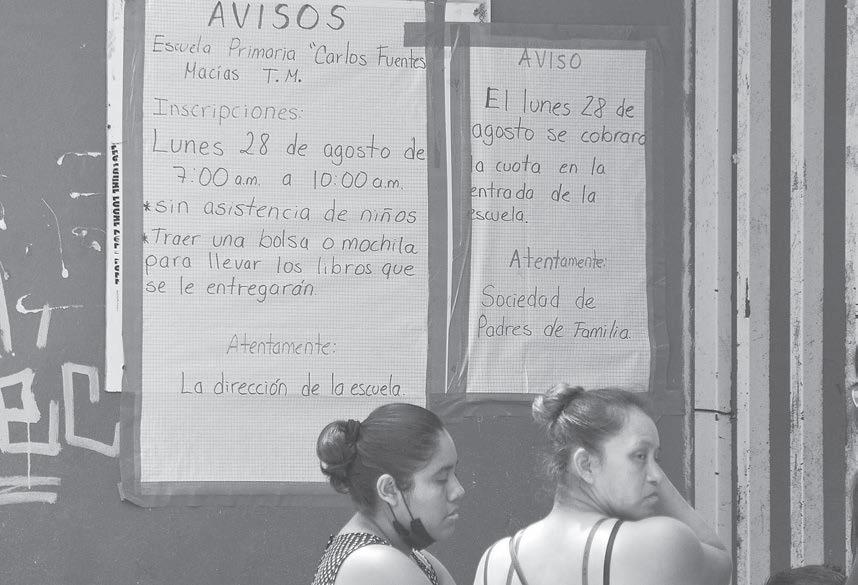 AVISOS
Escuela Primaria "Carlos Fuentes
Macías T.M.
Inscripciones:
Lunes 28 de agosto de
7:00 a.m. a 10:00 a.m.
*sin asistencia de niños
*Traer una bolsa o mochila
para llevar los libros que
se le entregarán.
Atentamente:
La dirección de la escuela.
AVISO
El lunes 28 de
agosto se cobrará
la cuota en la
entrada de la
escuela.
Atentamente:
Sociedad de
Padres de Familia.